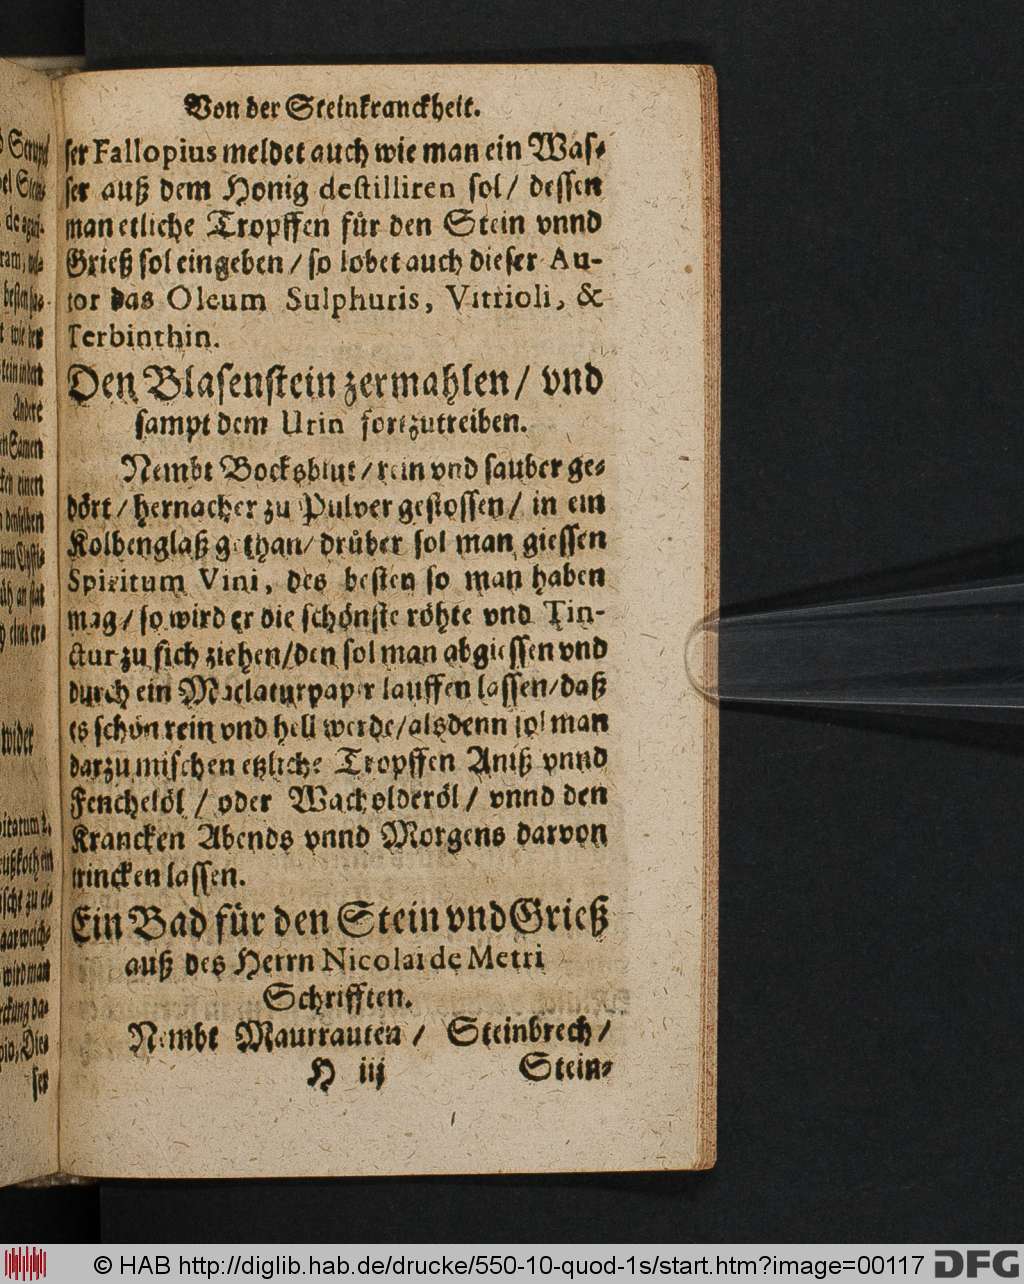 Von der Steinkranckheit.
ser Fallopius meldet auch wie man ein Was-
ser auß dem Honig destilliren sol/ dessen
man etliche Tropffen für den Stein vnnd
Grieß sol eingeben/ so lobet auch dieser Au-
tor das Oleum Sulphuris, Vitrioli, &
Terbinthin.
Den Blasenstein zermahlen/ vnd
sampt dem Urin fortzutreiben.
Nembt Bocksblut/ rein vnd sauber ge-
dört/ hernacher zu Pulver gestossen/ in ein
Kolbenglaß gethan/ drüber sol man giessen
Spiritum Vini, des besten so man haben
mag/ so wird er die schönste röhte vnd Tin-
ctur zu sich ziehen/ den sol man abgiessen vnd
durch ein Maclaturpapir lauffen lassen/ daß
es schön rein vnd hell werde/ alsdenn sol man
darzu mischen etzliche Tropffen Aniß vnnd
Fenchelöl/ oder Wacholderöl/ vnnd den
Krancken Abends vnnd Morgens darvon
trincken lassen.
Ein Bad für den Stein vnd Grieß
auß des Herrn Nicolai de Metri
Schrifften.
Nembt Maurrauten/ Steinbrech/
H iij Stein-
© HAB http://diglib.hab.de/drucke/550-10-quod-1s/start.htm?image=00117 DFG